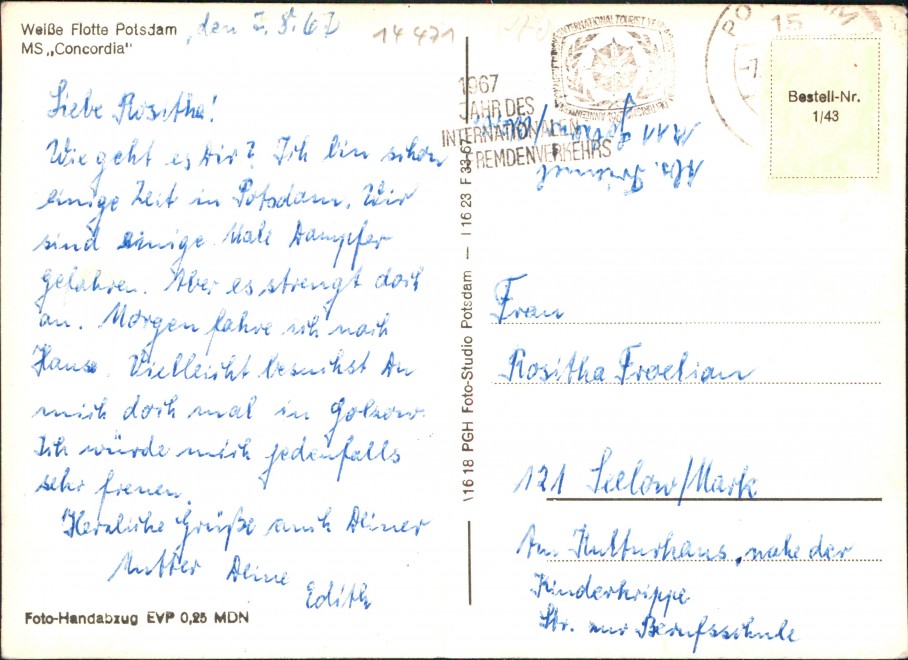 Weiße Flotte Potsdam
MS „Concordia"
den 7.8.67
14471
Liebe Rositha!
Wie geht es Dir? Ich bin schon
einige Zeit in Potsdam. Wir
sind einige Male Dampfer
gefahren. Aber es strengt doch
an. Morgen fahre ich nach
Hause. Vielleicht besuchst Du
mich doch mal in Golzow.
Ich würde mich jedenfalls
sehr freuen.
Herzliche Grüße auch Deiner
Mutter Deine
Edith
Foto-Handabzug EVP 0,25 MDN
\1618 PGH Foto-Studio Potsdam — I 16 23 F 33 67
1967
JAHR DES
INTERNATIONALEN
FREMDENVERKEHRS
INTERNATIONAL TOURIST YEAR
15
Bestell-Nr.
1/43
Abs.
Frau
Rositha Froelian
121 Seelow/Mark
Am Kulturhaus, nahe der
Kinderkrippe
Str. zur Berufsschule